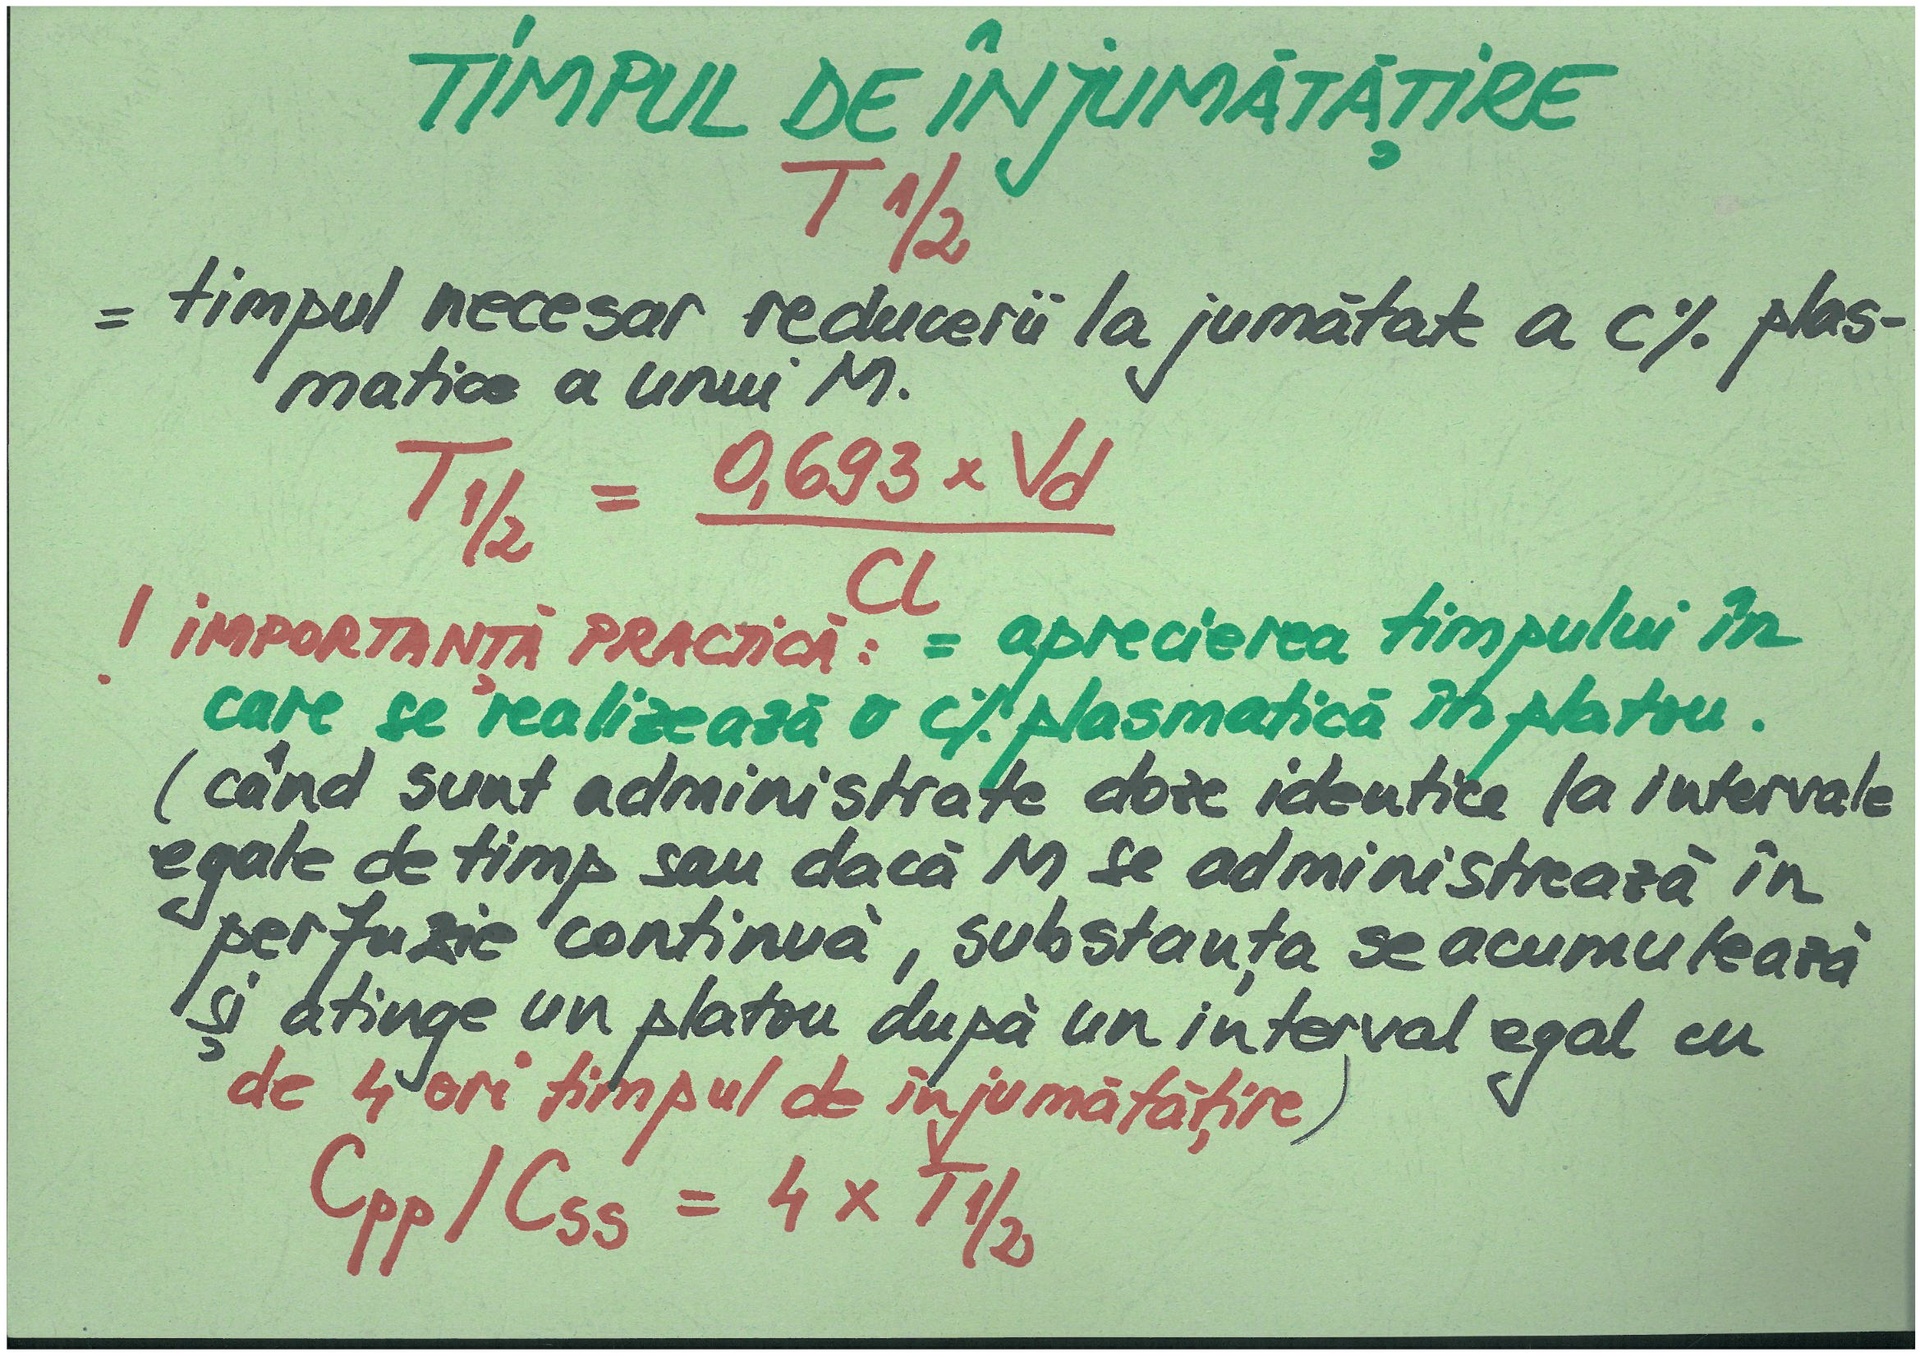 TIMPUL DE ÎNJUMĂTĂȚIRE
T 1/2
= timpul necesar reducerii la jumătate a c% plas-
matice a unui M.
T1/2 = 0,693 x Vd
Cl
! IMPORTANȚĂ PRACTICĂ: = aprecierea timpului în
care se realizează o c% plasmatică în platou.
(când sunt administrate doze identice la intervale
egale de timp sau dacă M se administrează în
perfuzie continuă, substanța se acumulează
și atinge un platou după un interval egal cu
de 4 ori timpul de înjumătățire)
Cpp/Css = 4 x T1/2